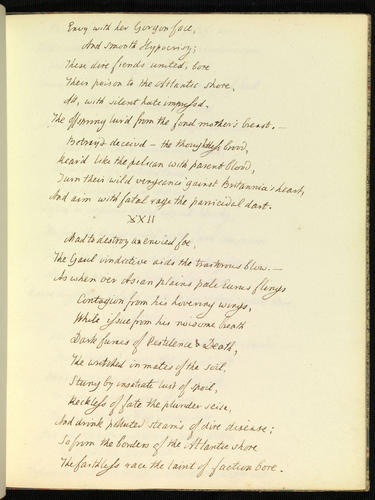 Envy with her Gorgon face,
And smooth Hypocrisy;
These dire fiends united, bore
Their poison to the Atlantic shore,
And, with silent hate impressed.
The offspring lur'd from the fond mother's breast. —
Betray'd deceived — the thoughtless brood,
Rear'd like the pelican with parent blood,
Turn their wild vengeance 'gainst Britannia's heart,
And aim with fatal rage the parricidal dart.
XXII
Mad to destroy an envied foe,
The Gaul vindictive aids the traitorous blow. —
As when o'er Asian plains pale Eurus flings
Contagion from his hovering wings,
While issue from his noisome breath
Dark fumes of Pestilence & Death,
The wretched inmates of the soil,
Stung by insatiate lust of spoil,
Reckless of fate the plunder seise,
And drink polluted steams of dire disease;
So from the borders of the Atlantic shore
The faithless race the taint of faction bore.